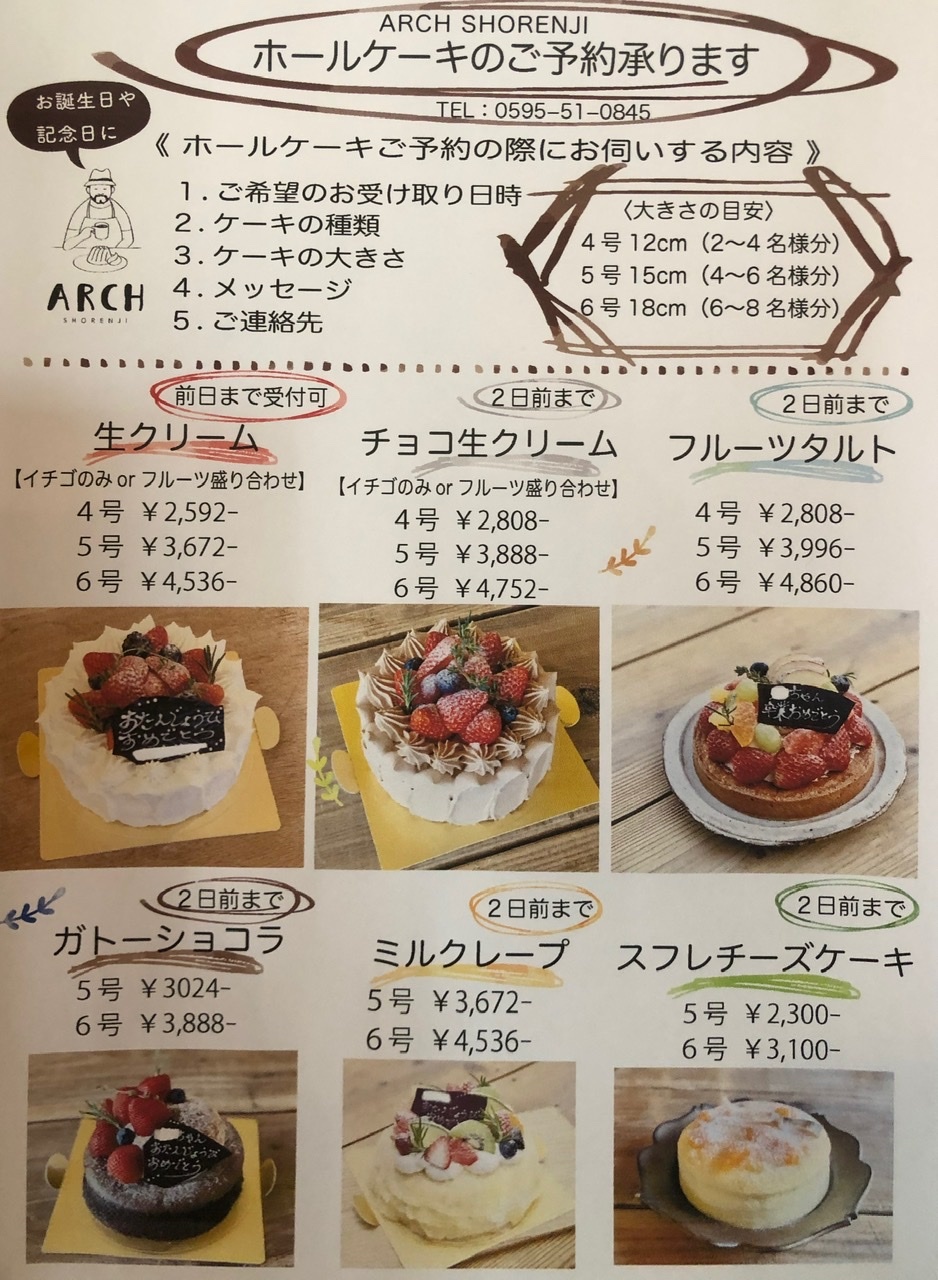 ARCH SHORENJI
ホールケーキのご予約承ります
TEL：0595-51-0845
お誕生日や
記念日に
《 ホールケーキご予約の際にお伺いする内容 》
1．ご希望のお受け取り日時
2．ケーキの種類
3．ケーキの大きさ
4．メッセージ
5．ご連絡先
ARCH
SHORENJI
〈大きさの目安〉
4号12cm（2〜4名様分）
5号15cm（4〜6名様分）
6号18cm（6〜8名様分）
前日まで受付可
生クリーム
【イチゴのみ or フルーツ盛り合わせ】
4号 ￥2,592-
5号 ￥3,672-
6号 ￥4,536-
2日前まで
チョコ生クリーム
【イチゴのみ or フルーツ盛り合わせ】
4号 ￥2,808-
5号 ￥3,888-
6号 ￥4,752-
2日前まで
フルーツタルト
4号 ￥2,808-
5号 ￥3,996-
6号 ￥4,860-
おたんじょうび
おめでとう
ちゃん
卒業おめでとう
2日前まで
ガトーショコラ
5号 ￥3024-
6号 ￥3,888-
2日前まで
ミルクレープ
5号 ￥3,672-
6号 ￥4,536-
2日前まで
スフレチーズケーキ
5号 ￥2,300-
6号 ￥3,100-
ちゃん
おたんじょうび
おめでとう